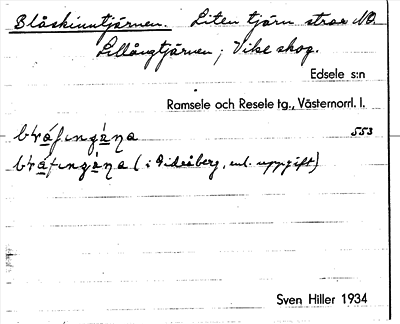 Blåskinntjärnen. Liten tjärn strax NO
Lillångtjärnen; Vike skog.
Edsele s:n
Ramsele och Resele tg., Västernorrl. l.
553
( i Gideåberg, enl. uppgift)
Sven Hiller 1934